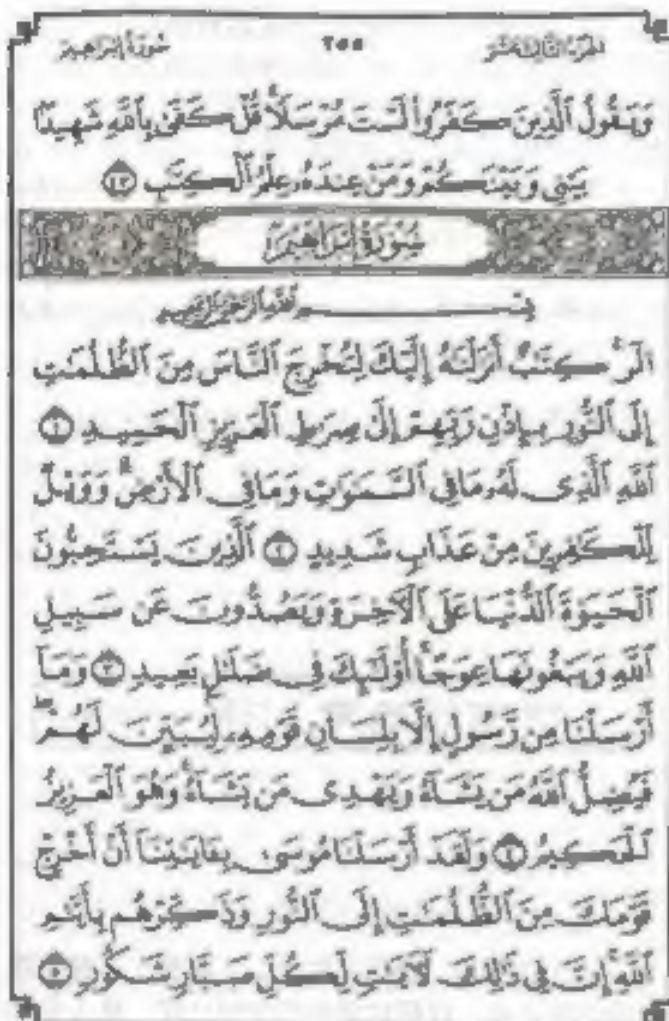 سُورَةُ إِبْرَاهِيم ٢٥٥ الجزء الثالث عشر
وَيَقُولُ ٱلَّذِينَ كَفَرُوا۟ لَسْتَ مُرْسَلًا ۚ قُلْ كَفَىٰ بِٱللَّهِ شَهِيدًۢا
بَيْنِى وَبَيْنَكُمْ وَمَنْ عِندَهُۥ عِلْمُ ٱلْكِتَٰبِ ٤٣
سُورَةُ إِبْرَاهِيمَ
بِسْمِ ٱللَّهِ ٱلرَّحْمَٰنِ ٱلرَّحِيمِ
الٓر ۚ كِتَٰبٌ أَنزَلْنَٰهُ إِلَيْكَ لِتُخْرِجَ ٱلنَّاسَ مِنَ ٱلظُّلُمَٰتِ
إِلَى ٱلنُّورِ بِإِذْنِ رَبِّهِمْ إِلَىٰ صِرَٰطِ ٱلْعَزِيزِ ٱلْحَمِيدِ ١
ٱللَّهِ ٱلَّذِى لَهُۥ مَا فِى ٱلسَّمَٰوَٰتِ وَمَا فِى ٱلْأَرْضِ ۗ وَوَيْلٌ
لِّلْكَٰفِرِينَ مِنْ عَذَابٍ شَدِيدٍ ٢ ٱلَّذِينَ يَسْتَحِبُّونَ
ٱلْحَيَوٰةَ ٱلدُّنْيَا عَلَى ٱلْءَاخِرَةِ وَيَصُدُّونَ عَن سَبِيلِ
ٱللَّهِ وَيَبْغُونَهَا عِوَجًا ۚ أُو۟لَٰٓئِكَ فِى ضَلَٰلٍۭ بَعِيدٍ ٣ وَمَآ
أَرْسَلْنَا مِن رَّسُولٍ إِلَّا بِلِسَانِ قَوْمِهِۦ لِيُبَيِّنَ لَهُمْ ۖ
فَيُضِلُّ ٱللَّهُ مَن يَشَآءُ وَيَهْدِى مَن يَشَآءُ ۚ وَهُوَ ٱلْعَزِيزُ
ٱلْحَكِيمُ ٤ وَلَقَدْ أَرْسَلْنَا مُوسَىٰ بِـَٔايَٰتِنَآ أَنْ أَخْرِجْ
قَوْمَكَ مِنَ ٱلظُّلُمَٰتِ إِلَى ٱلنُّورِ وَذَكِّرْهُم بِأَيَّىٰمِ
ٱللَّهِ ۚ إِنَّ فِى ذَٰلِكَ لَءَايَٰتٍ لِّكُلِّ صَبَّارٍ شَكُورٍ ٥